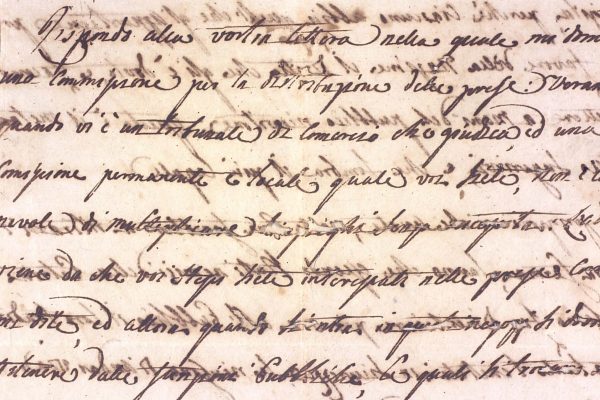 Rispondo alla vostra lettera nella quale mi dom
una Commissione per la distribuzione delle prese.
quando vi è un tribunale di Comercio che giudica, ed una
Comissione permanente e locale quale voi siete, non è
nevole di multiplicare
viene da che voi stessi siete interessati nelle prese, com
dite, ed allora quando si entra in questi negozj si
dalle funzioni Pubbliche, le quali si trova